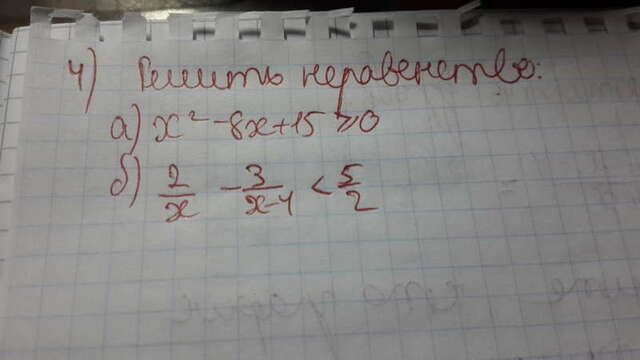 4) Решить неравенство:
а) x² - 8x + 15 ≥ 0
б) 2/x - 3/(x-4) < 5/2